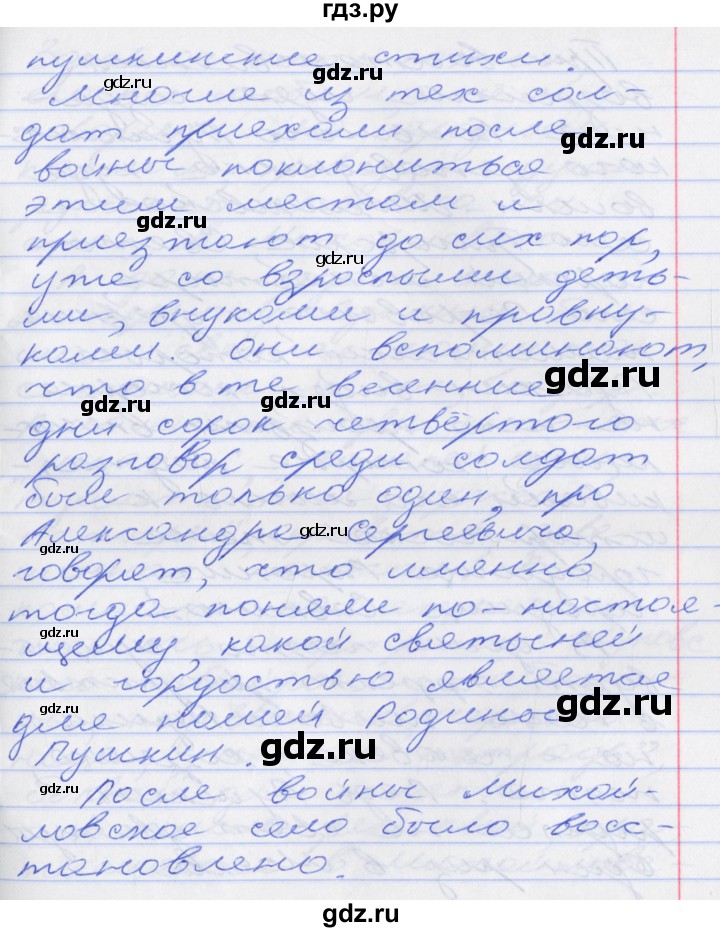 гдз.ру
пушкинские стихи.
gdz.ru gdz.ru
Многие из тех сол-
дат приехали после
gdz.ru
войны поклониться
этим местам и
gdz.ru
приезжают до сих пор,
gdz.ru
уже со взрослыми деть-
ми, внуками и правну-
ками. Они вспоминают,
что в те весенние
gdz.ru
gdz.ru gdz.ru
дни сорок четвёртого
разговор среди солдат
был только один, про
Александра Сергеевича,
gdz.ru gdz.ru
говорят, что именно
тогда поняли по-настоя-
gdz.ru
щему, какой святыней
и гордостью является
gdz.ru gdz.ru
для нашей Родины
Пушкин.
gdz.ru
gdz.ru
После войны Михай-
ловское село было восс-
gdz.ru gdz.ru
тановлено.
gdz.ru